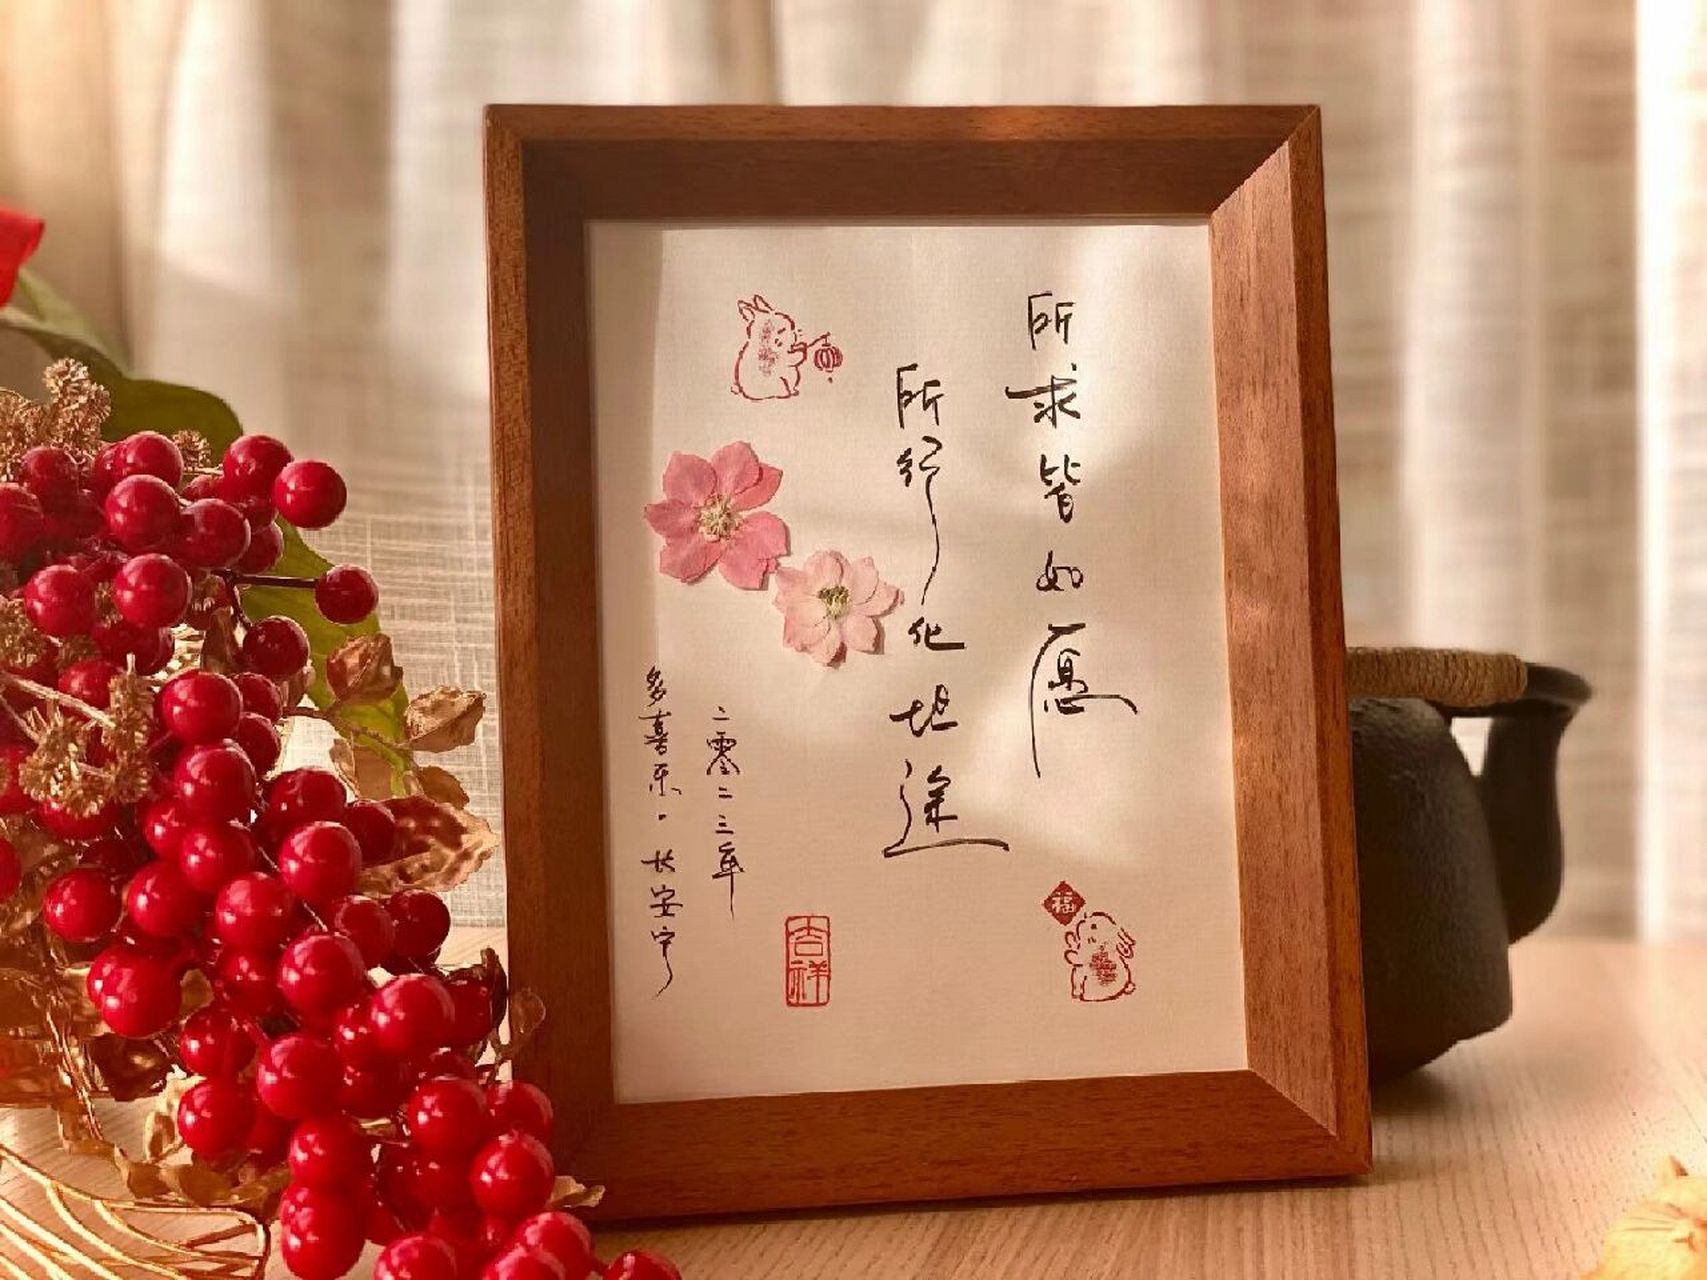 所求皆如愿
所行化坦途
二零二三年
多喜乐·长安宁
吉祥
福